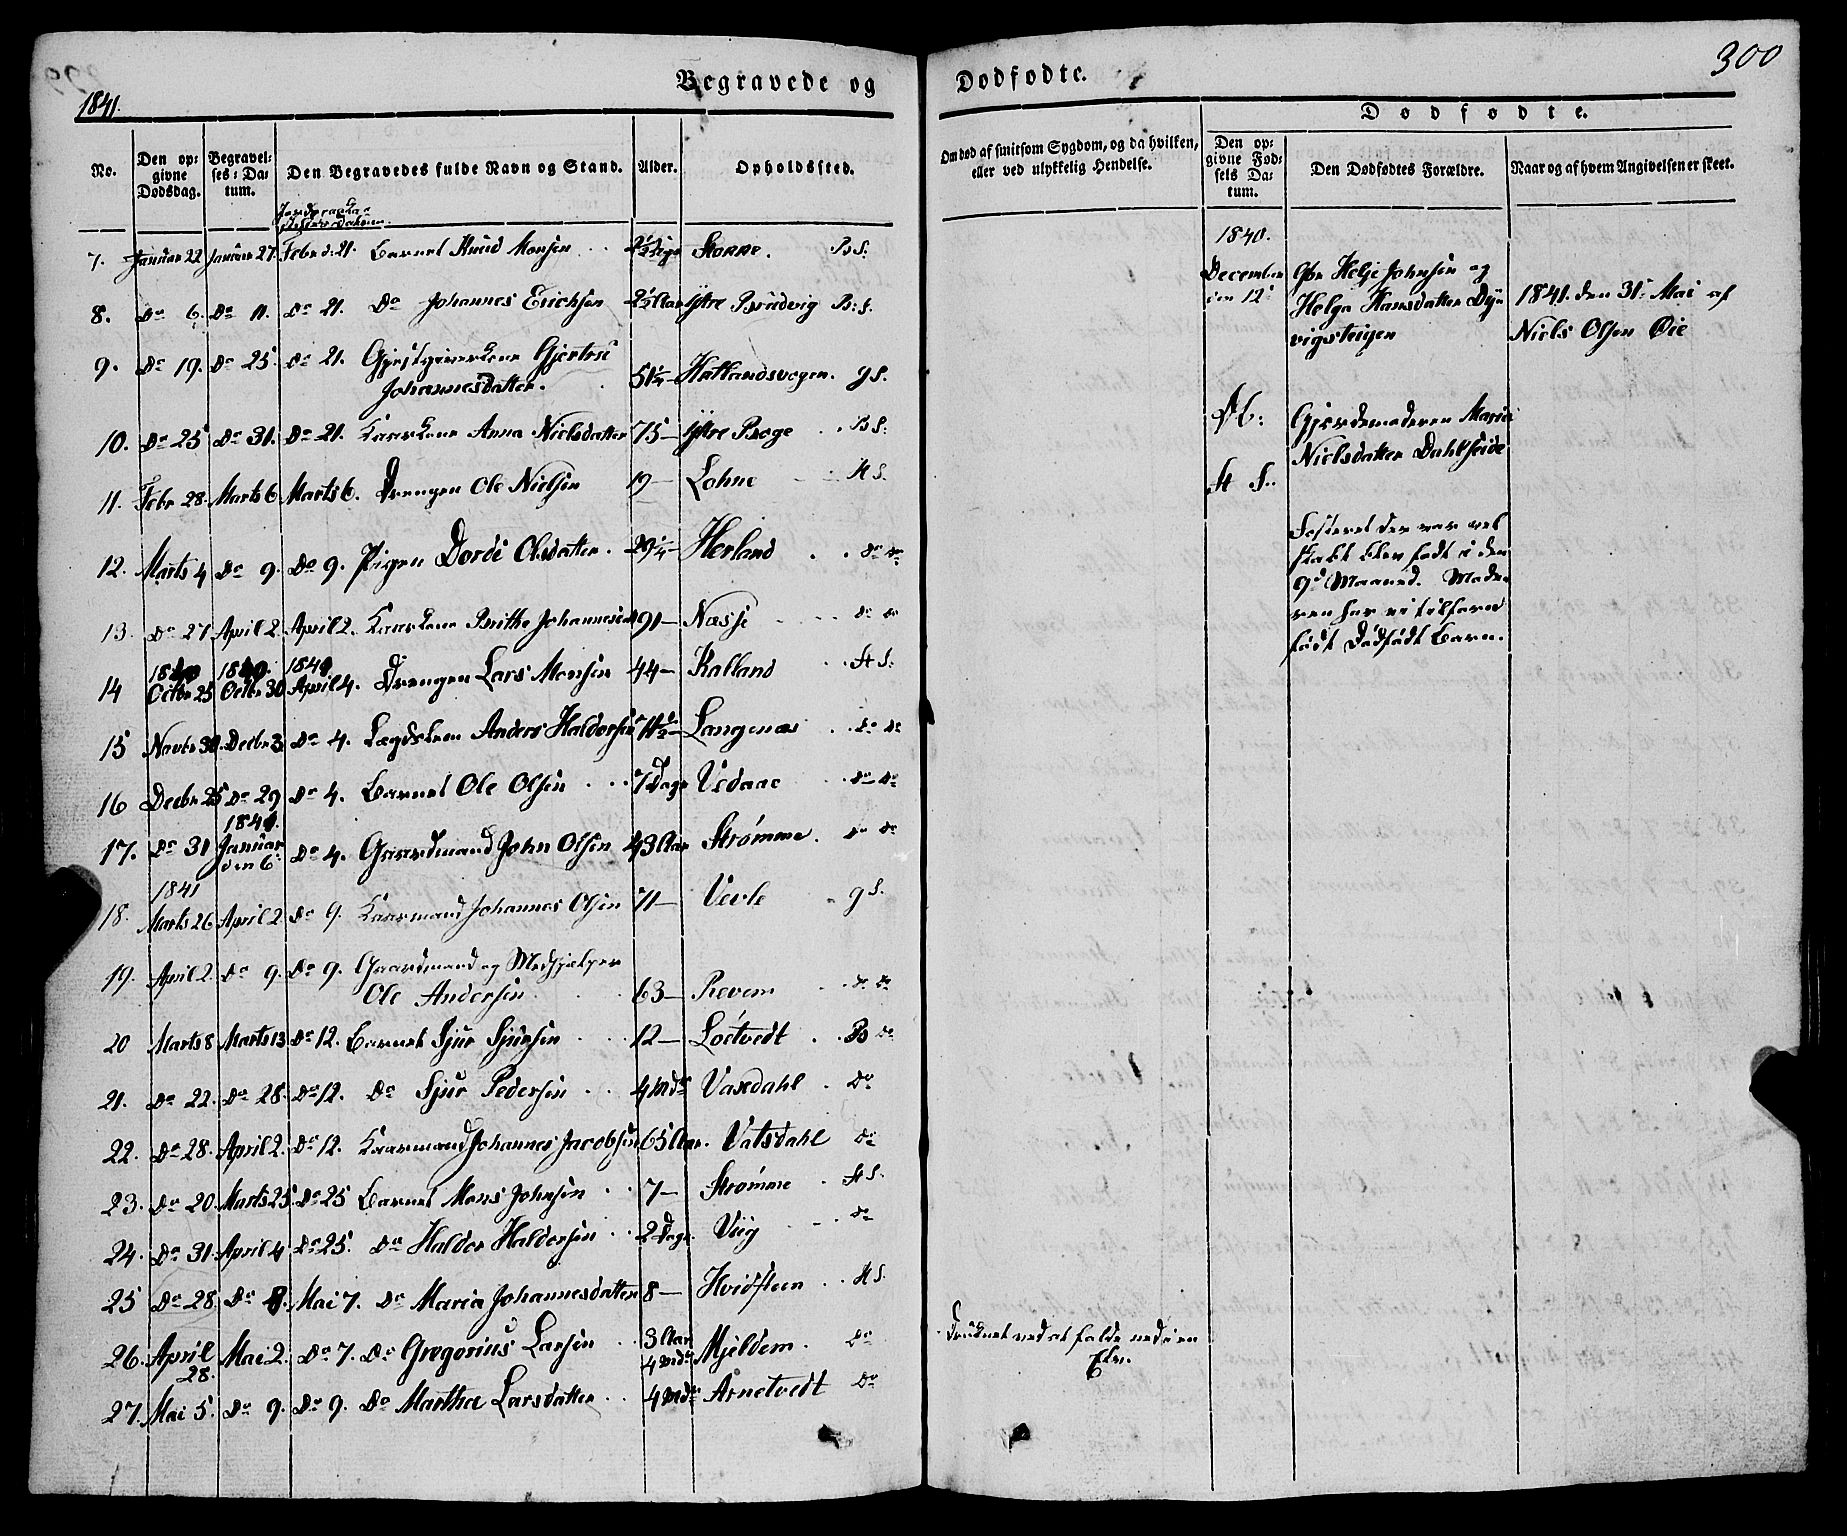 300
1841.
Begravede og Dødfødte.
Dødfødte.
No.
Den opgivne Dødsdag.
Begravelses-Datum.
Den Begravedes fulde Navn og Stand.
Alder.
Opholdssted.
Om død af smitsom Sygdom, og da hvilken, eller ved ulykkelig Hendelse.
Den opgivne Fødsels Datum.
Den Dødfødtes Forældre.
Naar og af hvem Angivelsen er skeet.
7. Januar 22 Januar 27. Febr d. 21. Barnet Knud Monsen Storre. B S.
8. Do 6. Do 11. Do 21. Do Johannes Erichsen 2½ Aar Ystre Brudvig B. S.
9. Do 19. Do 25. Do 21. Gjertrud
Johannesdatter. 51¼ — Hatlandsvogen. g S.
10. Do 25 Do 31. Do 21. Kaarkone Anna Nielsdatter 75 — Ystre Boge B S.
11. Febr 28. Marts 6 Marts 6. Drengen Ole Nielsen 19 — Lohne H S.
12. Marts 4 Do 9. Do 9. Pigen Dordi Olsdatter. 29¼ — Herland Do Do
13. Do 27 April 2. April 2. Kaarkone Brithe Johannesdr 91 — Nasse Do Do
1840 1840. 1841
14 Octbr 25 Octbr 30 April 4. Drengen Lars Monsen 44 — Kalland H S.
15 Novbr 30. Decbr 3 Do 4. Lægdslem Anders Haldorsen 74½ — Langenæs Do Do
16 Decbr 25 Do 29 Do 4. Barnet Ole Olsen 7 Dage Vedaae Do Do
1841.
17. Do 31 Januar den 6 Do 4. Gaardmand John Olsen 43 Aar Strømme. Do Do
1841
18. Marts 26 April 2. Do 9. Kaarmand Johannes Olsen 71 — Vevle g S.
19. April 2. Do 9. Do 9. Gaardmand og Medhjelper
Ole Andersen. 63 — Revem Do Do
20 Marts 8 Marts 13 Do 12. Barnet Sjur Sjursen 12 — Loetvedt B Do
21. Do 22. Do 28. Do 12. Do Sjur Pedersen 4 Mdr Vaxdahl Do
22. Do 28. April 2. Do 12. Kaarmand Johannes Jacobsen 65 Aar. Vatsdahl Do
23. Do 20. Marts 25 Do 25 Barnet Mons Johnsen 7 — Strømme H S.
24. Do 31. April 4 Do 25. Do Haldor Haldorsen 2 Dage. Viig Do
25 Do 28. Do 8. Mai 7. Do Maria Johannesdatter 8 — Hvidsteen H S.
26. April 28. Mai 2. Do 7. Do Gregorius Larsen 3 Aar 4 Mdr Mjeldem. Do
Druknet ved at falde ned i en
Elv.
27. Mai 5. Do 9. Do 9. Do Marthe Larsdatter 4 Mdr Arnetvedt Do
1840.
December
den 12
Helje Johnsen og
Helga Hansdatter Dyr
vigsteigen
1841. den 31 Mai af
Niels Olsen Øie
Gjordemoderen Maria
Nielsdatter Dahlseide
H S.
Fosteret der var vel
skabt blev født i den
9d Maaned. Mode
ren har ei tilforn
født Dødfødt Barn.